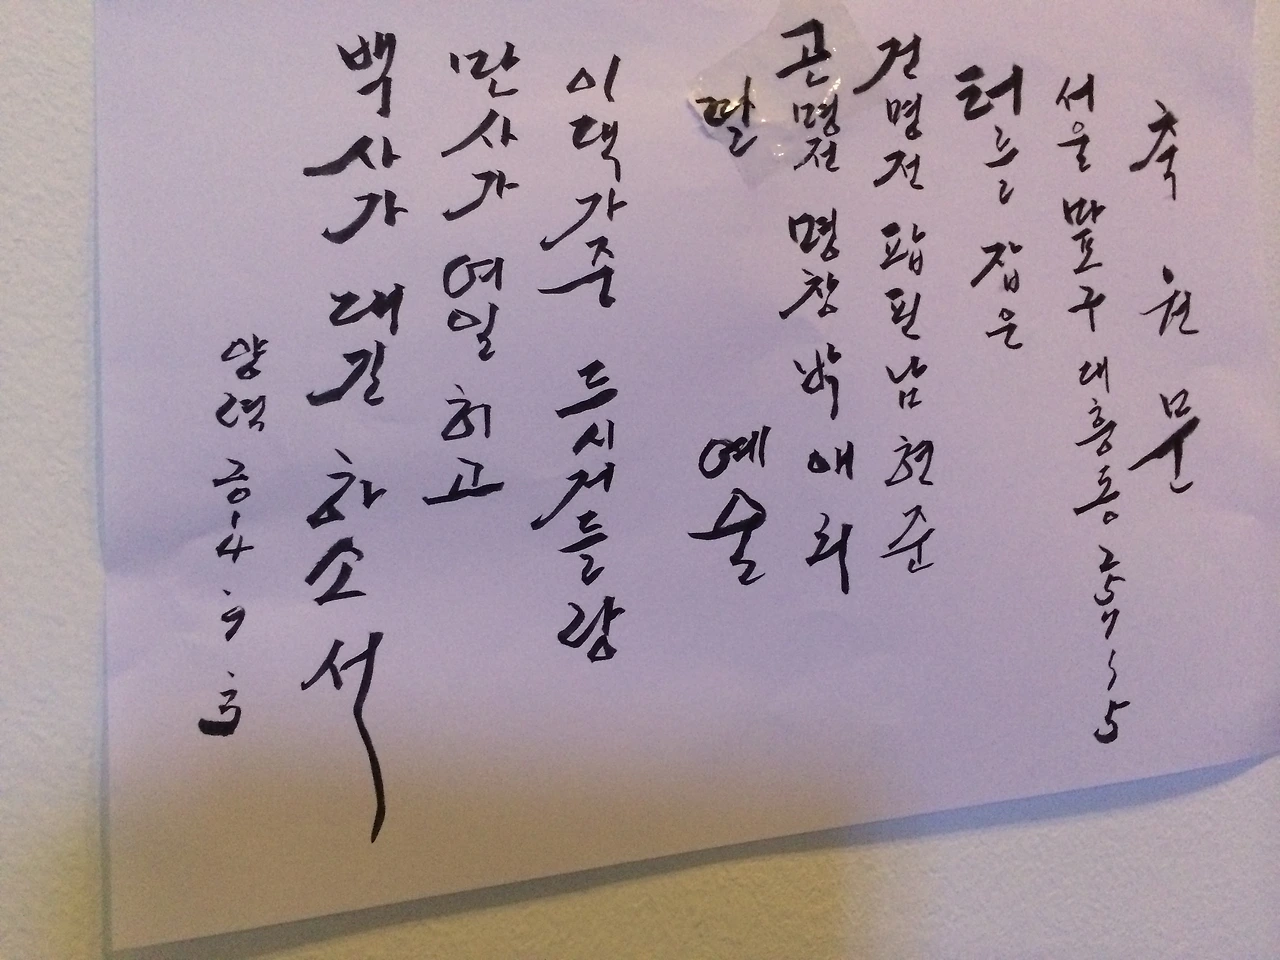 축 원 문
서울 마포구 대흥동 257-5
터를 잡은
건명전 팝핀 남현준
곤명전 명창 박애리
딸 예술
이댁 가중 드시거들랑
만사가 여일 허고
백사가 대길 하소서
양력